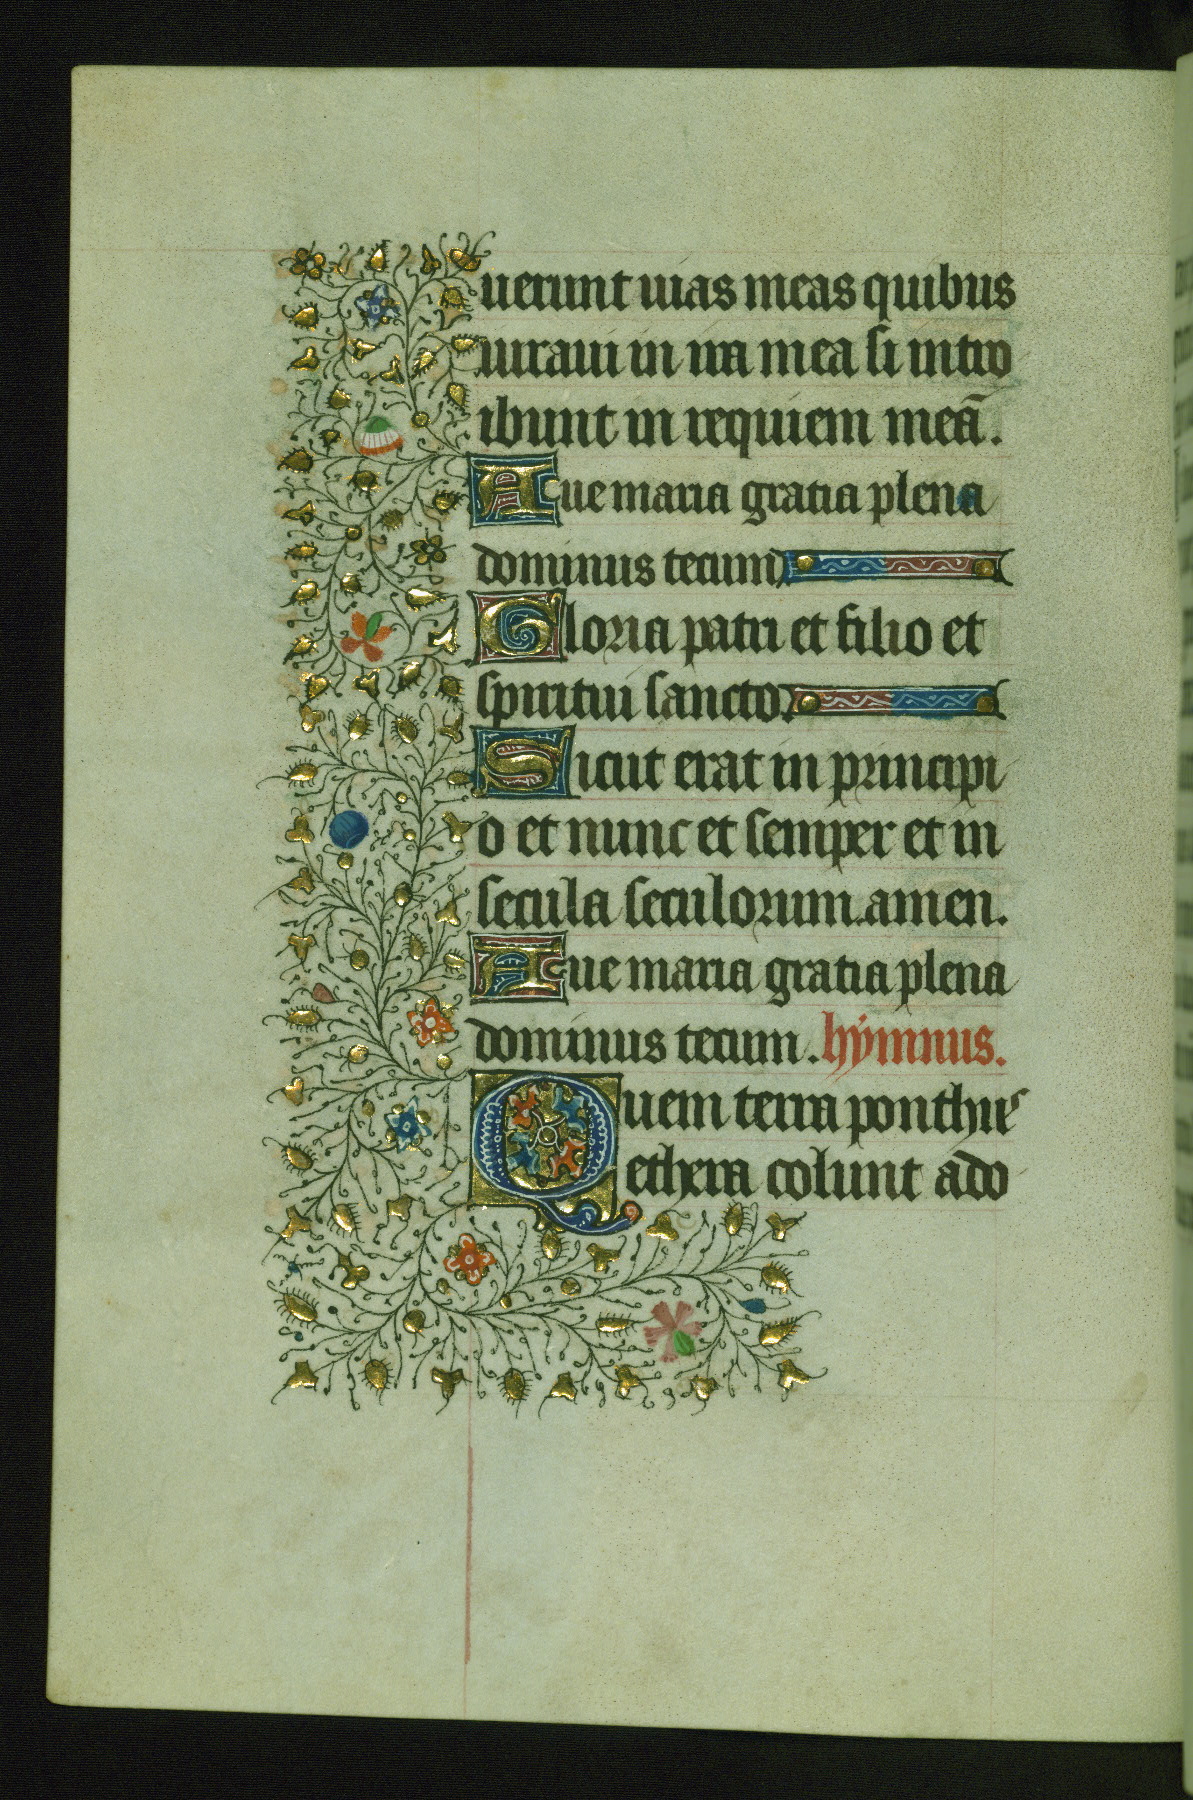 uerunt uias meas quibus
iuraui in ira mea si intro
ibunt in requiem meā.
Aue maria gratia plena
dominus tecum
Gloria patri et filio et
spiritui sancto.
Sicut erat in principi
o et nunc et semper et in
secula seculorum.amen.
Aue maria gratia plena
dominus tecum. hẏmnus.
Quem terra ponthus
ethera colunt ado